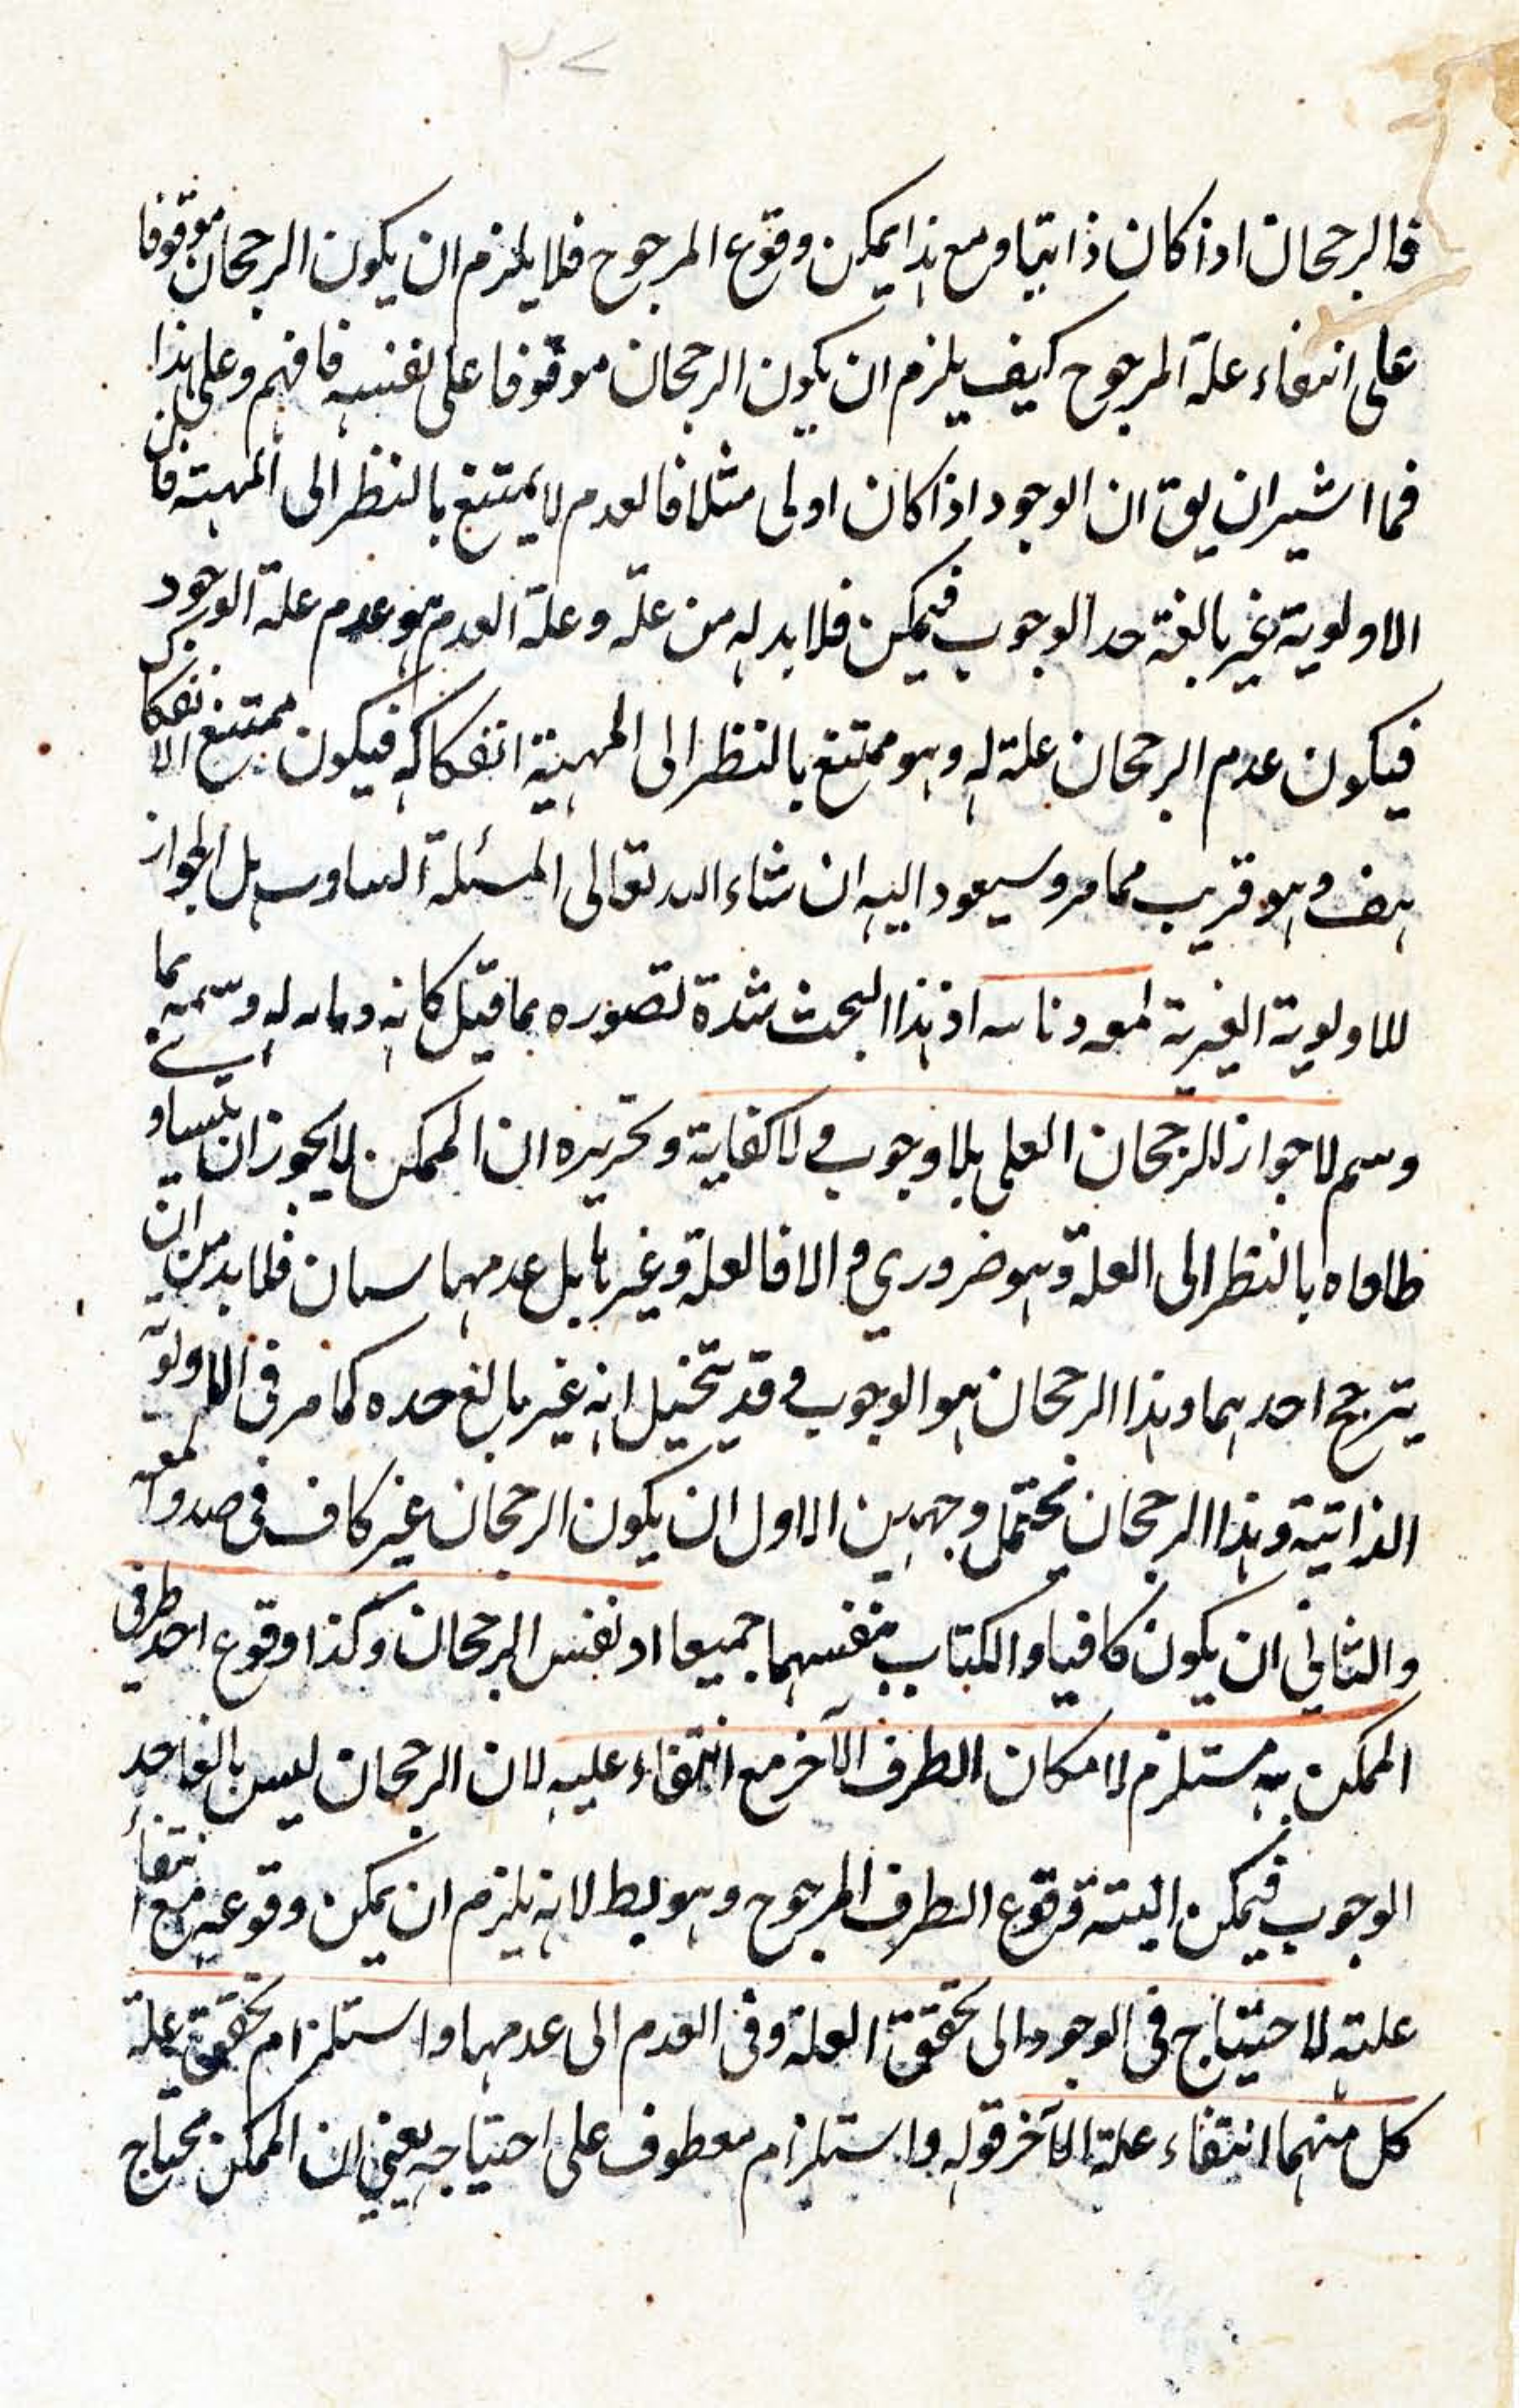 ٢٠٧
فالرجحان اذا كان ذاتيا ومع هذا يمكن وقوع المرجوح فلا يلزم ان يكون الرجحان موقوفا
على انتفاء علة المرجوح كيف يلزم ان يكون الرجحان موقوفا على نفسه فافهم وعلى هذا
فما اشير ان يق ان الوجود اذا كان اولى مثلا فالعدم لا يمتنع بالنظر الى المهية فان
الاولوية غير بالغة حد الوجوب فيمكن فلا بد له من علة وعلة العدم هو عدم علة الوجود
فيكون عدم الرجحان علة له وهو ممتنع بالنظر الى المهية انفكاكه فيكون ممتنع الانفكاك
هف وهو قريب مما مر وسيعود اليه ان شاء الله تعالى المسئلة هل الجواز
للاولوية الغيرية اذ هذا البحث شدة تصوره بما قيل كانه
لا جواز للرجحان بلا وجوب ولا كفاية وتحريره ان الممكن لا يجوز ان يتساو
طرفاه بالنظر الى العلة وهو ضروري والا فالعلة وغيرها بل عدمها سيان فلا بد من ان
يترجح احدهما وهذا الرجحان هو الوجوب وقد يتخيل انه غير بالغ حده كما مر في الاولوية
الذاتية وهذا الرجحان يحتمل وجهين الاول ان يكون الرجحان غير كاف في
والثاني ان يكون كافيا جميعا نفس الرجحان وكذا وقوع احد طرفي
الممكن به مستلزم لامكان الطرف الآخر مع انتفاء عليه لان الرجحان ليس بالغا حد
الوجوب فيمكن البتة وقوع الطرف المرجوح وهو بط لانه يلزم ان يمكن وقوعه مع انتفاء
علته لاحتياج في الوجود الى تحقق العلة وفي العدم الى عدمها واستلزام تحقق علة
كل منهما انتفاء علة الآخر قوله واستلزام معطوف على احتياجه يعني ان الممكن محتاج